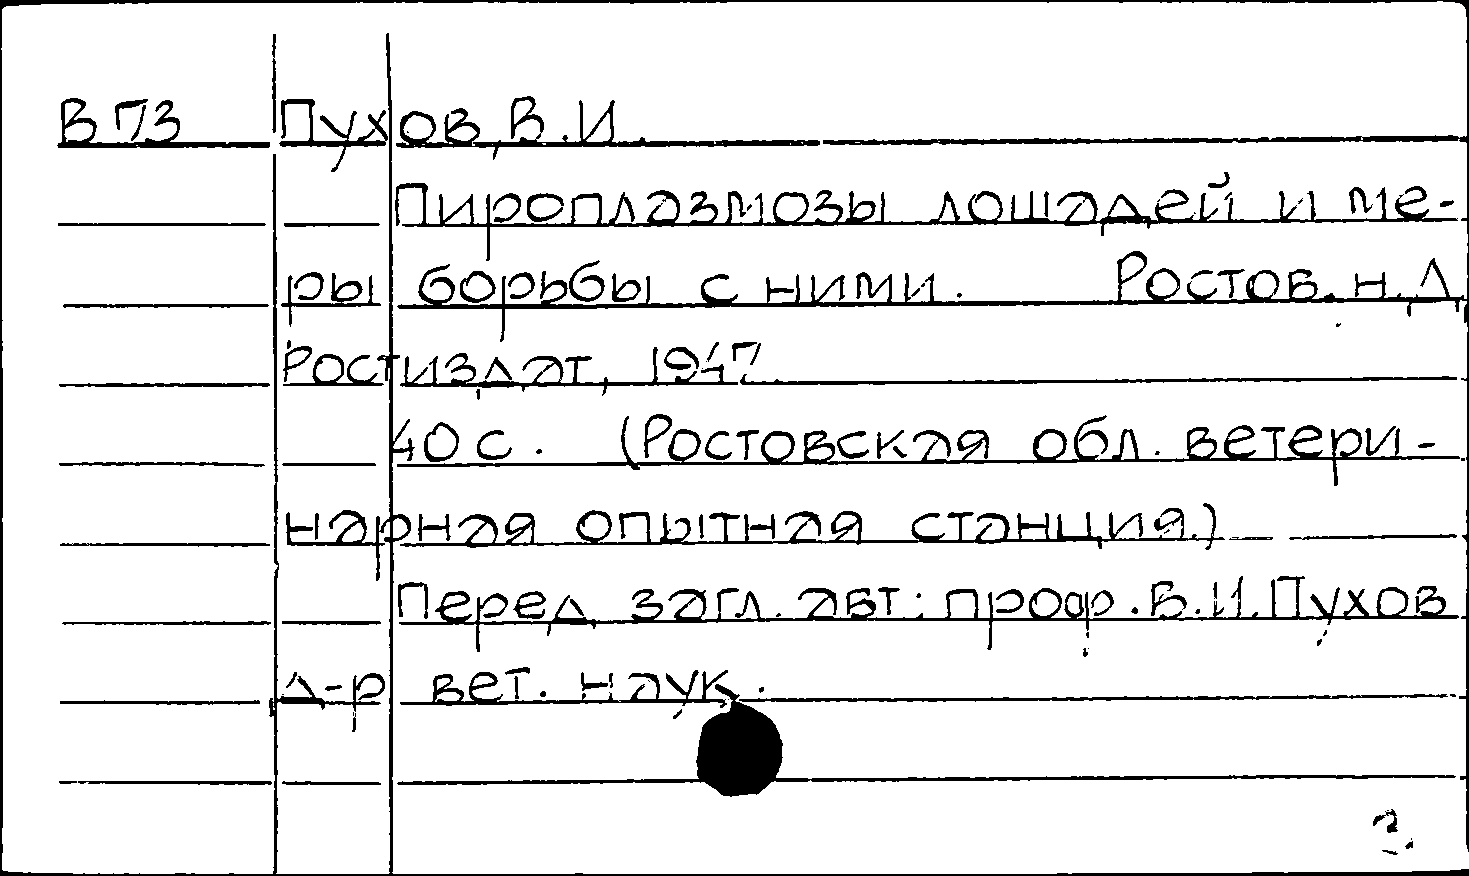 В 73 Пухов, В.И.
Пироплазмозы лошадей и ме-
ры борьбы с ними. Ростов.н.Д,
Ростиздат, 1947.
40 с. (Ростовская обл. ветери-
нарная опытная станция.)
Перед загл. авт: проф. В.И. Пухов
д-р вет. наук.